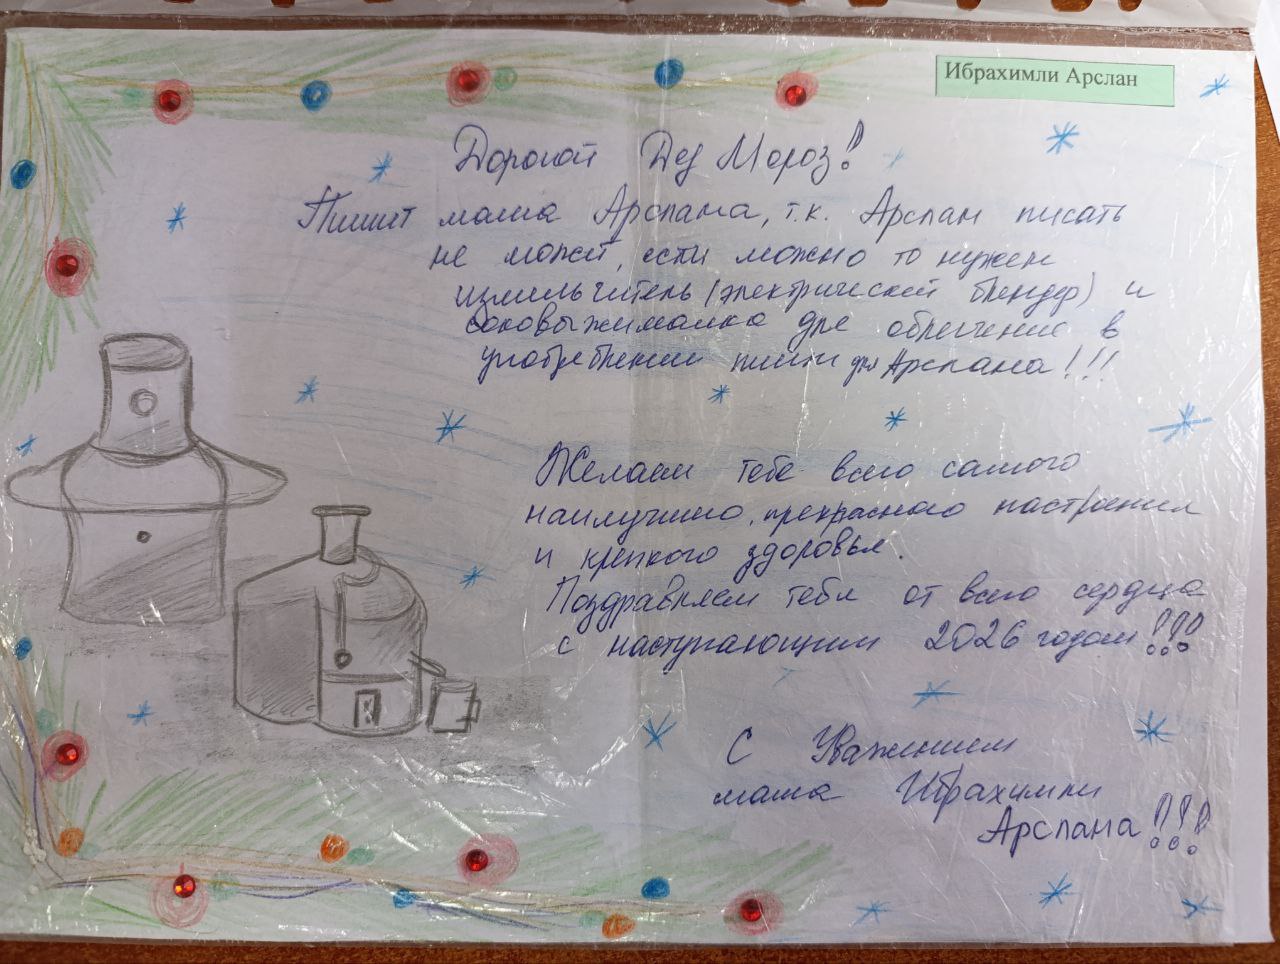 Ибрахимли Арслан
Дорогой Дед Мороз!
Пишит мама Арслана, т.к. Арслан писать
не может, если можно то нужен
измильчитель (электрический блендер) и
соковыжималка для облегчение в
употреблении пищи для Арслана!!!
Желаем тебе всего самого
наилучшего, прекрасного настроения
и крепкого здоровья.
Поздравляем тебя от всего сердца
с наступающим 2026 годом!!!
С Уважением
мама Ибрахимли
Арслана!!!